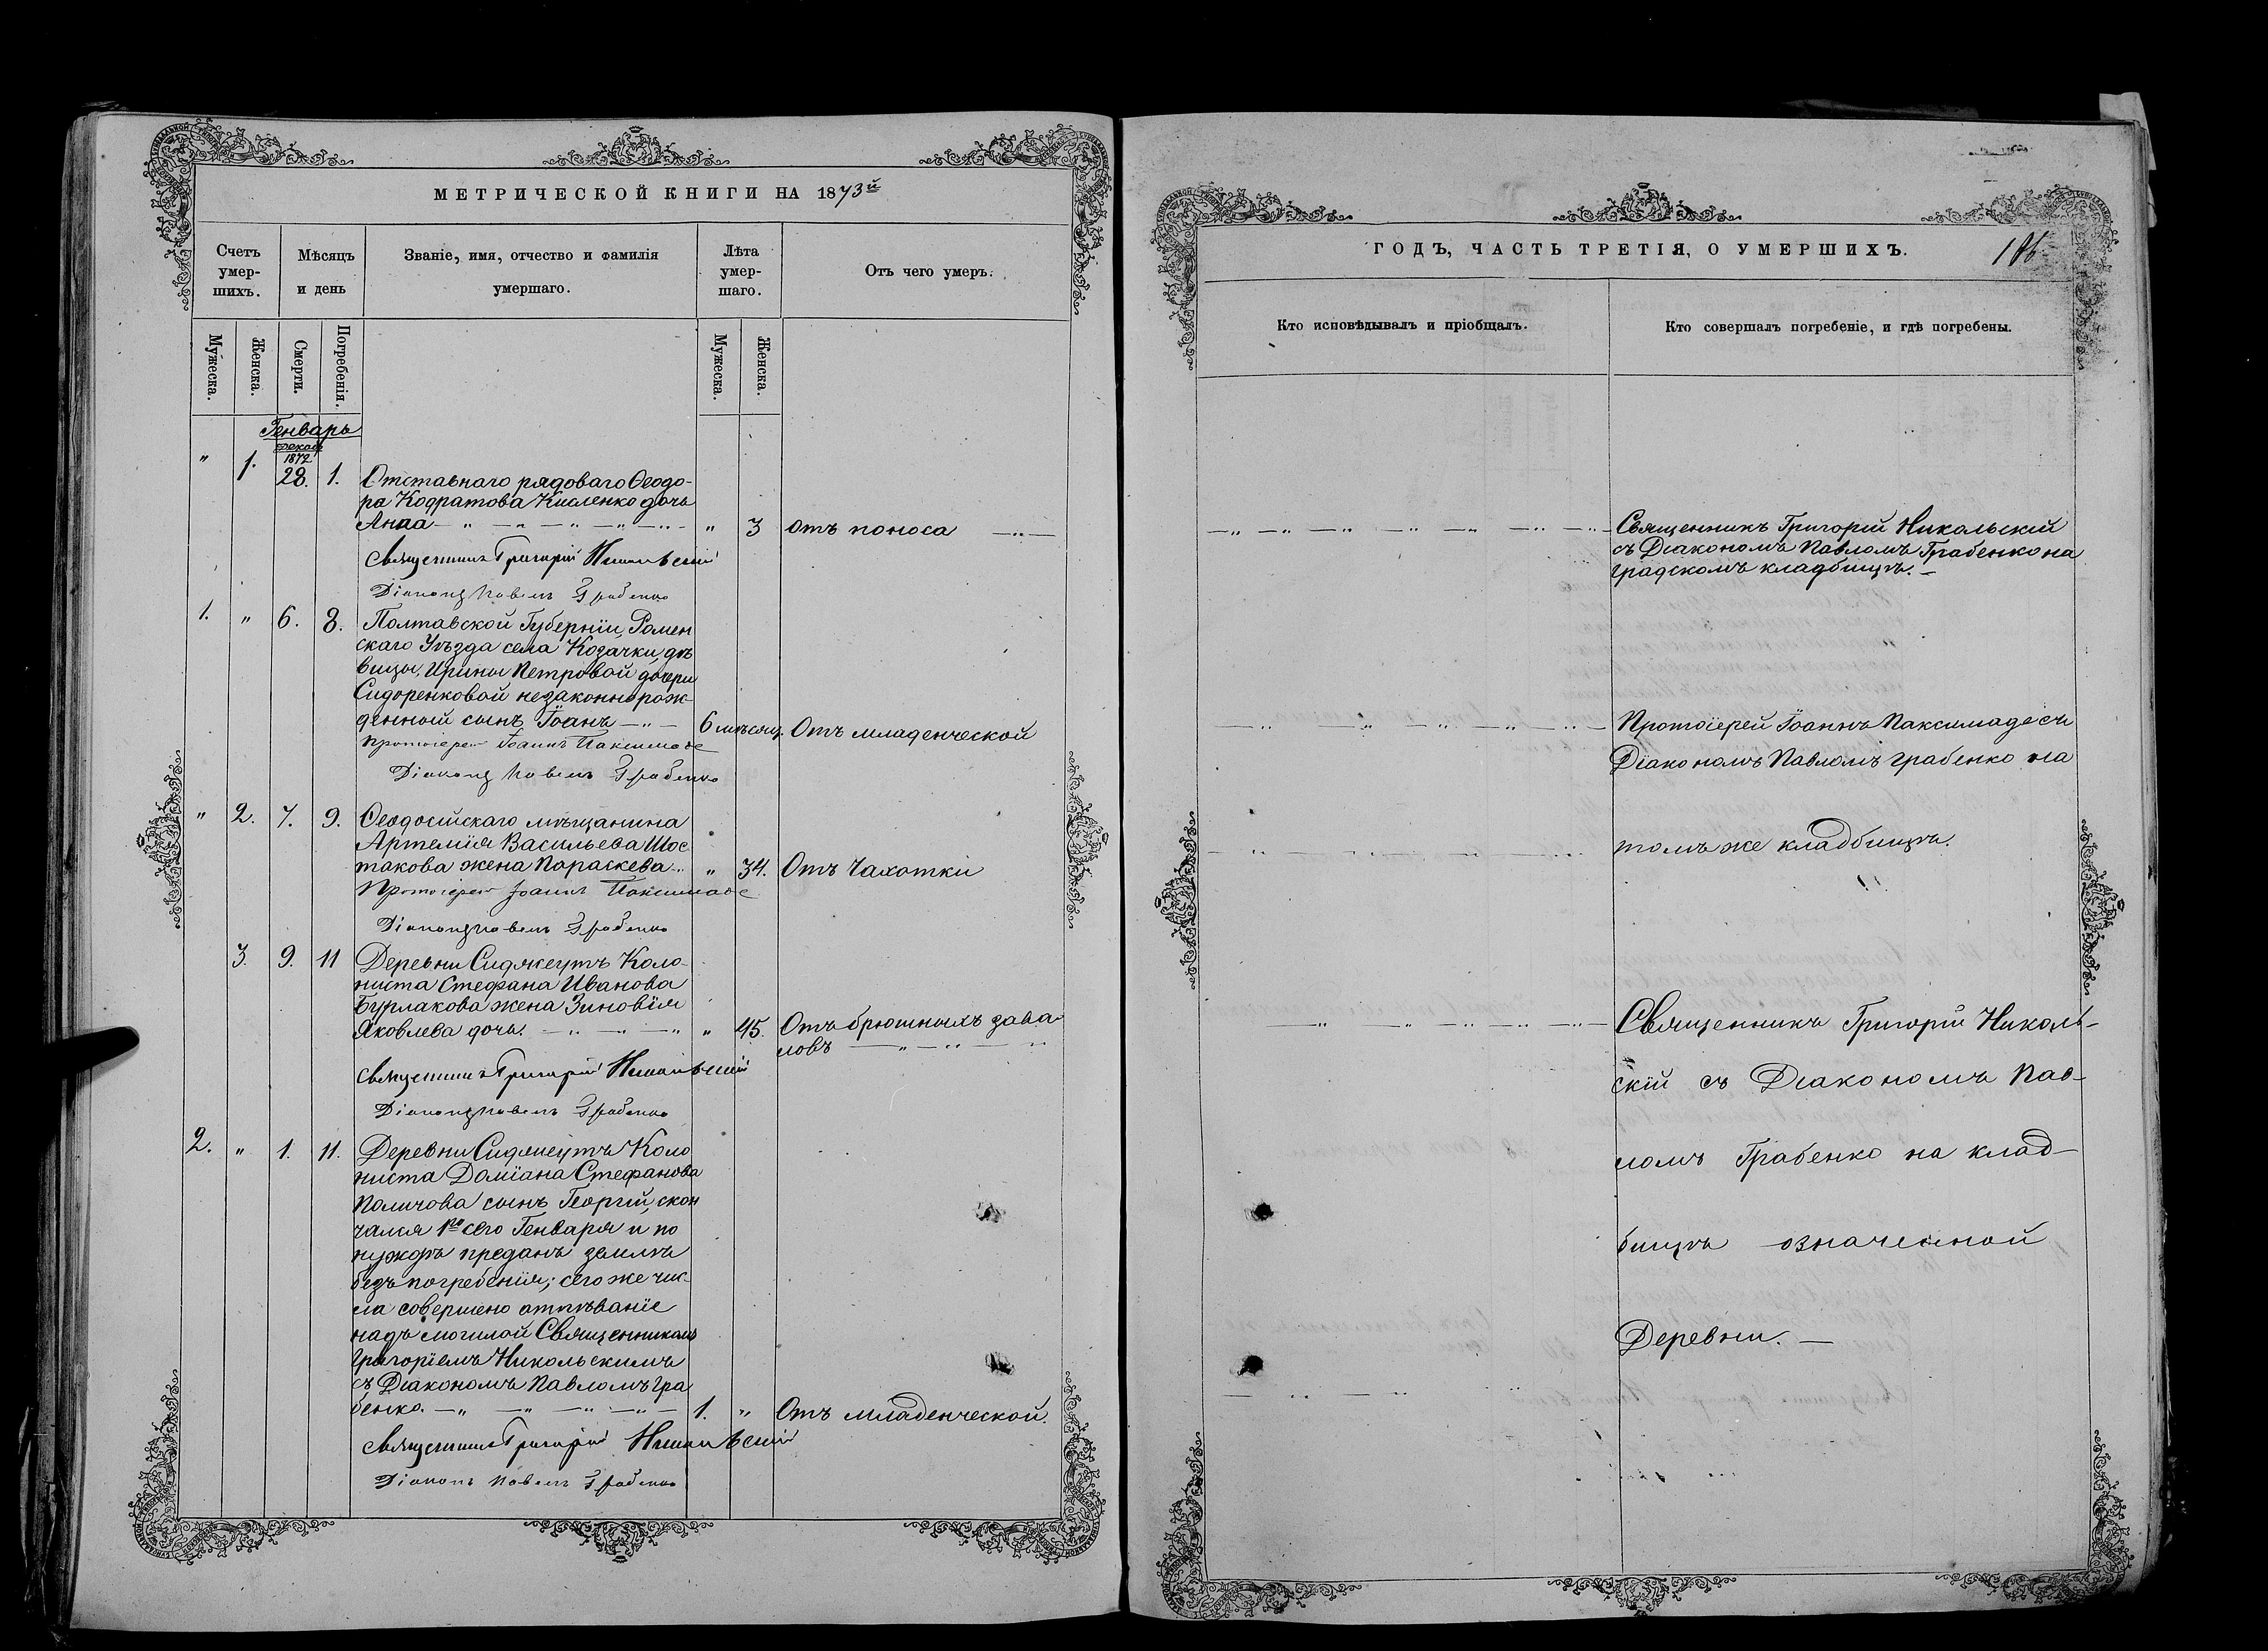 МЕТРИЧЕСКОЙ КНИГИ НА 1873й
Счетъ умер-шихъ.
Мѣсяцъ и день
Званіе, имя, отчество и фамилія умершаго.
Лѣта умер-шаго.
Отъ чего умеръ.
Мужеска.
Женска.
Смерти.
Погребенія.
Мужеска.
Женска.
Генварь
Декаб
1872
" 1. 28. 1. Отставнаго рядоваго Ѳеодо-
ра Кодратова Кисленко дочь
Анна " 3 отъ поноса
Священникъ Григорій Никольскій
Діаконъ Павелъ Грабенко
1. " 6. 8. Полтавской Губерніи, Ромен
скаго Уѣзда села Козачки, дѣ
вицы, Ирины Петровой дочери
Сидоренковой незаконнорож-
денной сынъ Іоанъ 6 мѣсяц. Отъ младенческой
Протоіерей Іоаннъ Паксимаде
Діаконъ Павелъ Грабенко
" 2. 7. 9. Ѳеодосійскаго мѣщанина
Артемія Васильева Шос
такова жена Параскева " 34. Отъ Чахотки
Протоіерей Іоаннъ Паксимаде
Діаконъ Павелъ Грабенко
3. 9. 11 Деревни Сиджеутъ Коло-
ниста Стефана Иванова
Бурлакова жена Зиновія
Яковлева дочь. " 45. Отъ брюшныхъ зава
ловъ
Священникъ Григорій Никольскій
Діаконъ Павелъ Грабенко
2. " 1. 11. Деревни Сиджеутъ Коло
ниста Даміана Стефанова
Поличова сынъ Георгій, скон
чался 1го сего Генваря и по
нуждѣ преданъ землѣ
безъ погребенія; сего же чис-
ла совершено отпѣваніе
надъ могилой Священникомъ
Григоріемъ Никольскимъ
съ Діакономъ Павломъ Гра
бенко. 1. " Отъ младенческой.
Священникъ Григорій Никольскій
Діаконъ Павелъ Грабенко
ГОДЪ, ЧАСТЬ ТРЕТІЯ, О УМЕРШИХЪ.
Кто исповѣдывалъ и пріобщалъ.
Кто совершалъ погребеніе, и гдѣ погребены.
Священникъ Григорій Никольскій
съ Діакономъ Павломъ Грабенко на
градскомъ кладбищѣ.
Протоіерей Іоаннъ Паксимаде съ
Діакономъ Павломъ Грабенко на
томъ же кладбищѣ.
Священникъ Григорій Николь-
скій съ Діакономъ Пав-
ломъ Грабенко на клад-
бищѣ означенной
Деревни.